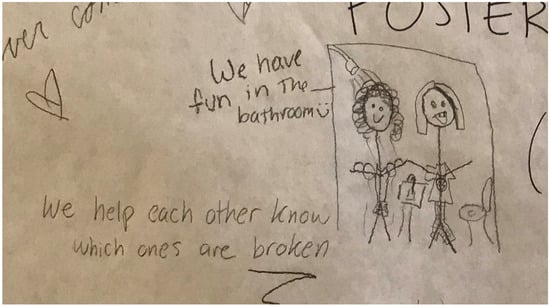 ver com
FOSTER
We have
fun in The
bathroom
We help each other know
which ones are broken